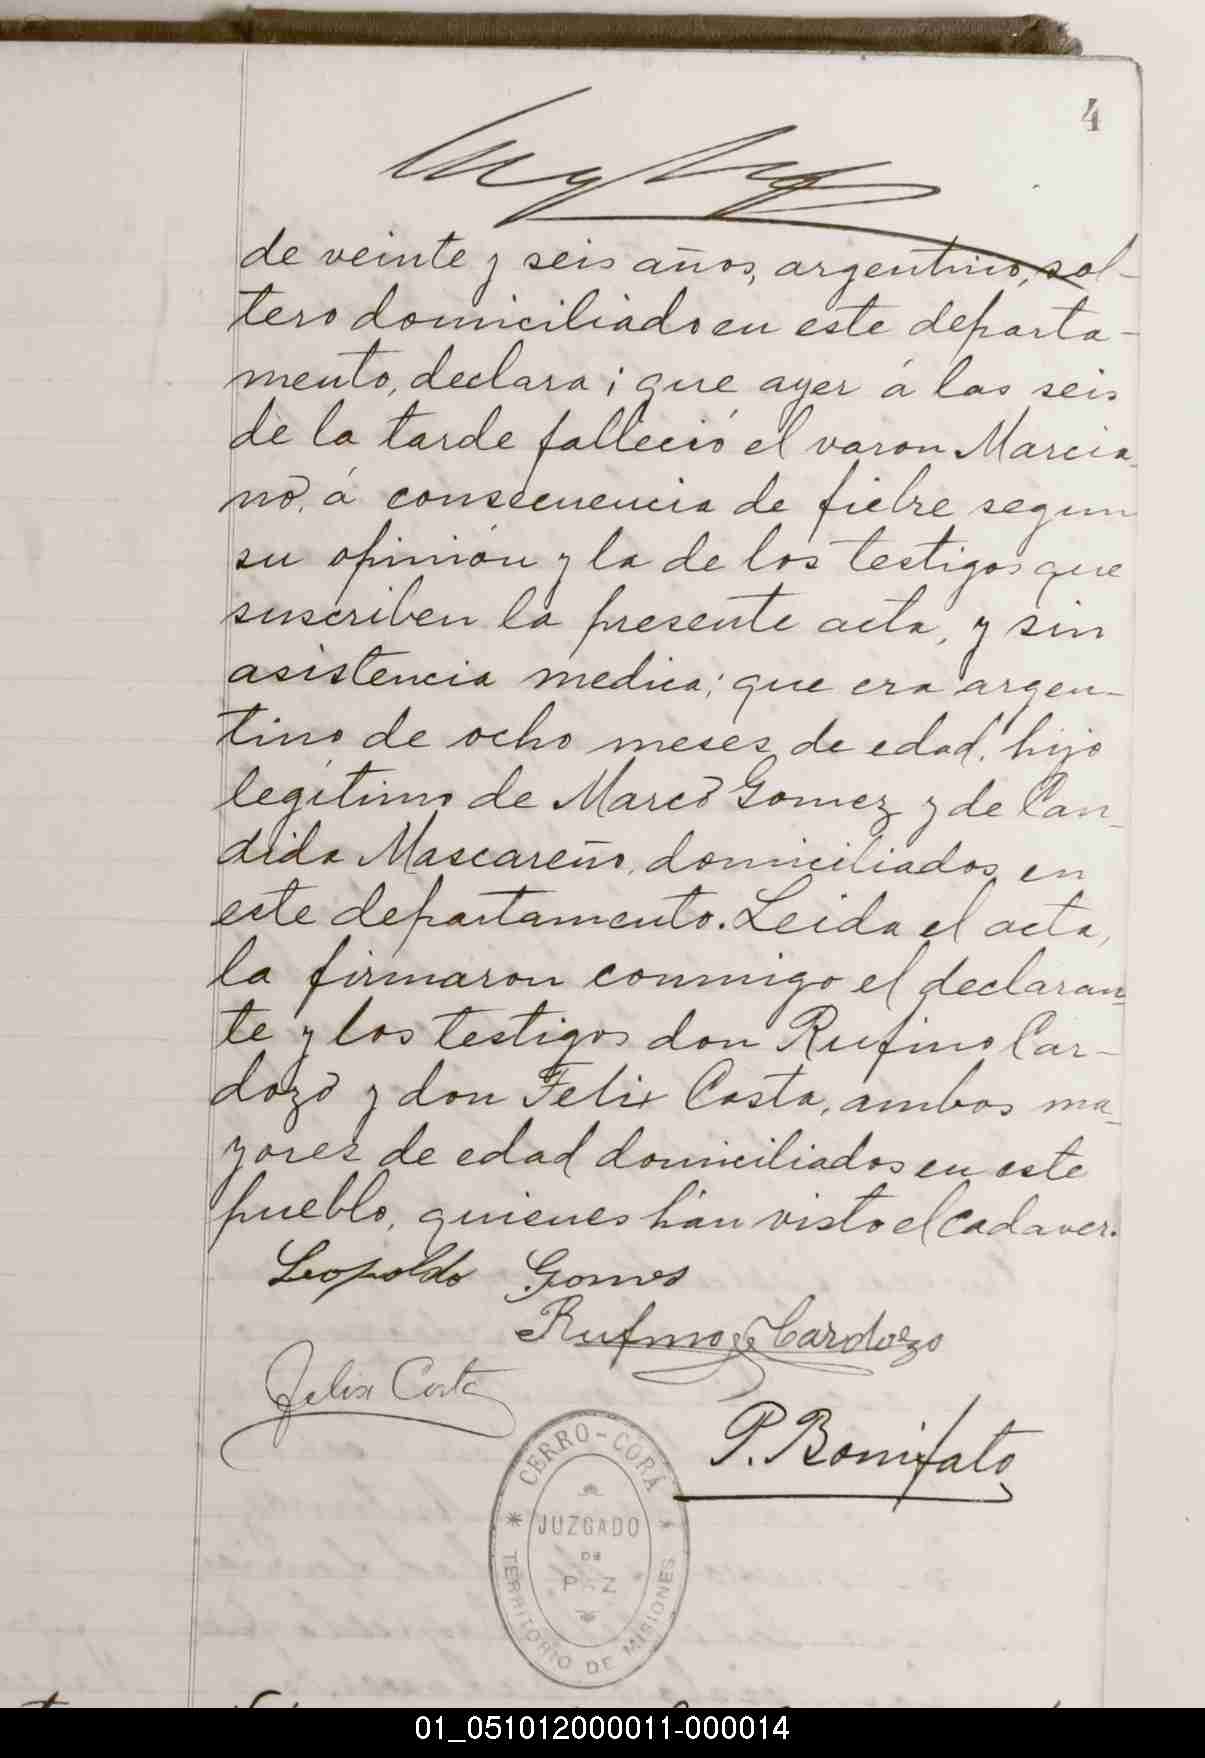 4
de veinte y seis años, argentino, sol-
tero domiciliado en este departa-
mento, declara; que ayer á las seis
de la tarde falleció el varon Marcia-
no, á consecuencia de fiebre segun
su opinión y la de los testigos que
suscriben la presente acta, y sin
asistencia medica; que era argen-
tino de ocho meses de edad, hijo
legítimo de Marco Gomez y de Can-
dida Mascareño, domiciliados en
este departamento. Leida el acta,
la firmaron conmigo el declaran-
te y los testigos don Rufino Car-
dozo y don Felix Costa, ambos ma-
yores de edad domiciliados en este
pueblo, quienes hán visto el cadaver.
Leopoldo Gomes
Rufino Cardozo
Felix Costa
P. Bonifato
CERRO-CORÁ
JUZGADO
DE
PAZ
TERRITORIO DE MISIONES
01_051012000011-000014